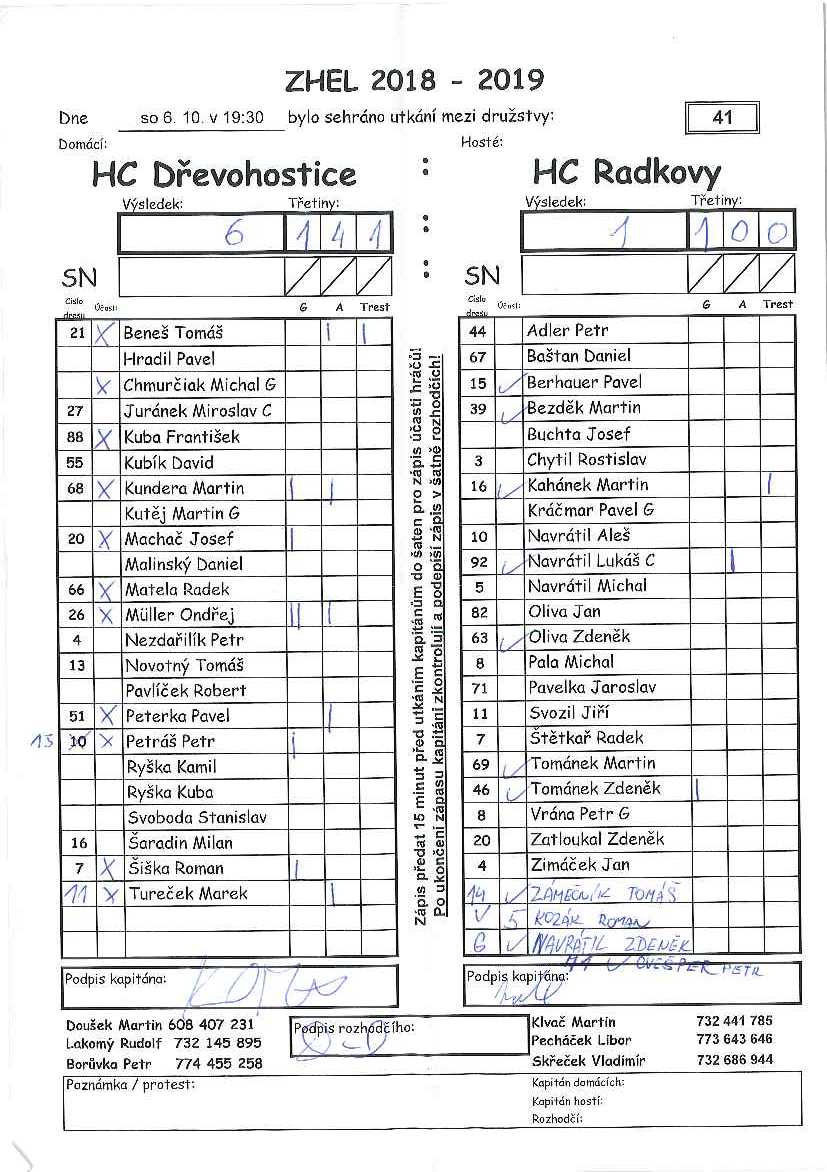 ZHEL 2018 - 2019
Dne so 6. 10. v 19:30 bylo sehráno utkání mezi družstvy: 41
Domácí: Hosté:
HC Dřevohostice : HC Radkovy
Výsledek: Třetiny: Výsledek: Třetiny:
6 1 4 1 : 1 1 0 0
SN : SN
Číslo dresu Účast: G A Trest Číslo dresu Účast: G A Trest
21 X Beneš Tomáš | |
Hradil Pavel
X Chmurčiak Michal G
27 Juránek Miroslav C
88 X Kuba František
55 Kubík David
68 X Kundera Martin | |
Kutěj Martin G
20 X Machač Josef |
Malinský Daniel
66 X Matela Radek
26 X Müller Ondřej || |
4 Nezdařilík Petr
13 Novotný Tomáš
Pavlíček Robert
51 X Peterka Pavel |
13 10 X Petráš Petr |
Ryška Kamil
Ryška Kuba
Svoboda Stanislav
16 Šaradin Milan
7 X Šiška Roman |
11 X Tureček Marek |
Zápis předat 15 minut před utkáním kapitánům do šaten pro zápis účasti hráčů!
Po ukončení zápasu kapitání zkontrolují a podepíší zápis v šatně rozhodčích!
44 Adler Petr
67 Baštan Daniel
15 ✓ Berhauer Pavel
39 ✓ Bezděk Martin
Buchta Josef
3 Chytil Rostislav
16 ✓ Kahánek Martin |
Kráčmar Pavel G
10 Navrátil Aleš
92 ✓ Navrátil Lukáš C |
5 Navrátil Michal
82 Oliva Jan
63 ✓ Oliva Zdeněk
8 Pala Michal
71 Pavelka Jaroslav
11 Svozil Jiří
7 Štětkař Radek
69 ✓ Tománek Martin
46 ✓ Tománek Zdeněk |
8 Vrána Petr G
20 Zatloukal Zdeněk
4 Zimáček Jan
14 ✓ ZÁMEČNÍK TOMÁŠ
V 5 KOZÁK ROMAN
G ✓ NAVRÁTIL ZDENĚK
✓ PETR
Podpis kapitána: Podpis kapitána:
Doušek Martin 608 407 231
Lakomý Rudolf 732 145 895
Borůvka Petr 774 455 258
Podpis rozhodčího:
Klvač Martin 732 441 785
Pecháček Libor 773 643 646
Skřeček Vladimír 732 686 944
Poznámka / protest:
Kapitán domácích:
Kapitán hostí:
Rozhodčí: